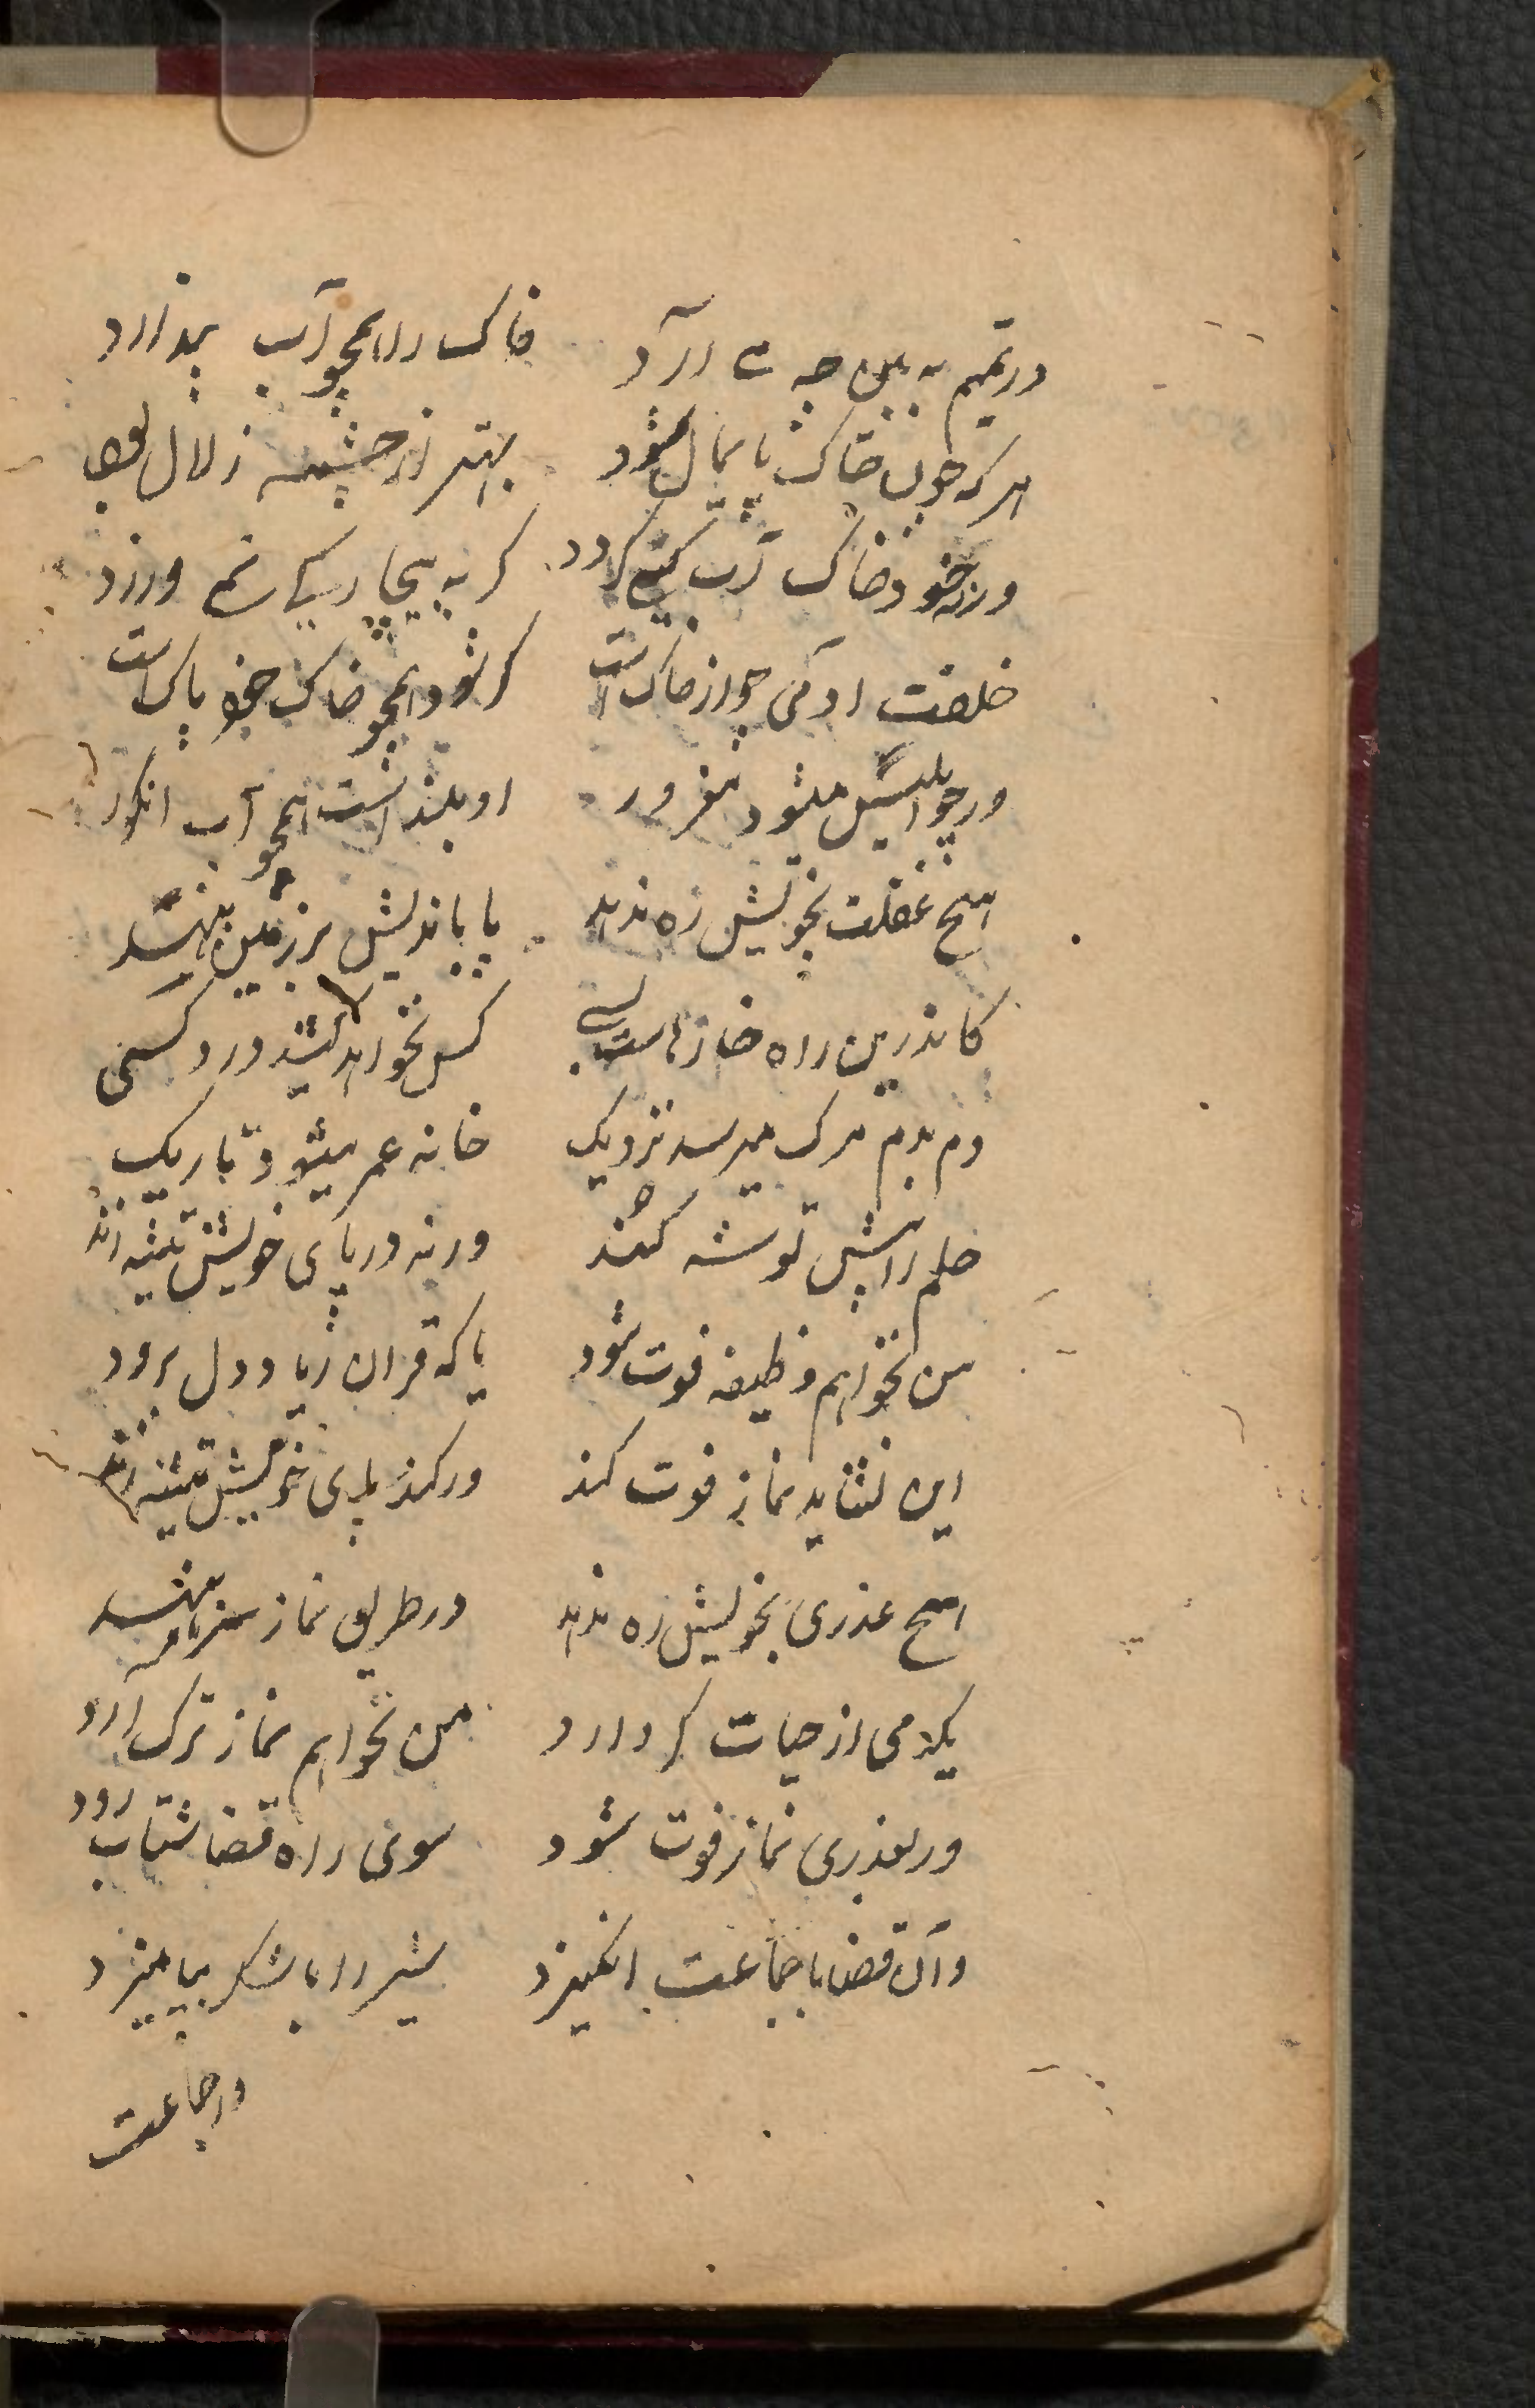 در تیمم به بین چه مے آرد خاک را همچو آب پندارد
هر که چون خاک پایمال شود بهتر از چشمه زلال بود
ورنه خود خاک آب کی گردد گر به بیچارگی نمی ورزد
خلقت آدمی چو از خاک است گر شود همچو خاک خود پاک است
ور چو ابلیس میشود مغرور او پلید است همچو آب انگور
هیچ غفلت بخویش ره ندهد پا باندیش بر زمین بنهد
کاندرین راه خارهاست بسی کس نخواهد کشید درد کسی
دم بدم مرگ میرسد نزدیک خانه عمر میشود تاریک
علم را پیش توشه کند ورنه در پای خویش تیشه زند
من نخواهم وظیفه فوت شود یا که قران زیاد دل برود
این نشاید نماز فوت کند ور کند پای خویش تیشه زند
هیچ عذری بخویش ره ندهد در طریق نماز سر بنهد
یکدمی از حیات گر دارد من نخواهم نماز ترک آرد
ور بعذری نماز فوت شود سوی راه قضا شتاب رود
وان قضا با جماعت انگیزد شیر را با شکر بیامیزد
در جماعت